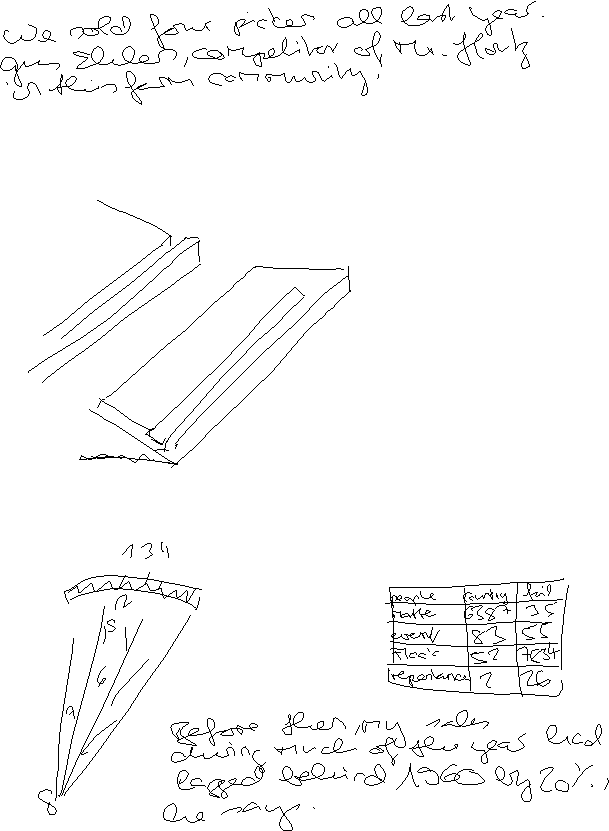 We sold four picker all last year.
gus Ehlers, competitor of Mr. Hortz
in this farm community.
134
12
15
6
9
8
people country fail
Matter 6387 35
event 83 55
Floor 52 7834
reperiance 2 26
Before then, my sales
during much of the year had
lagged behind 1960 by 20%,
he says.